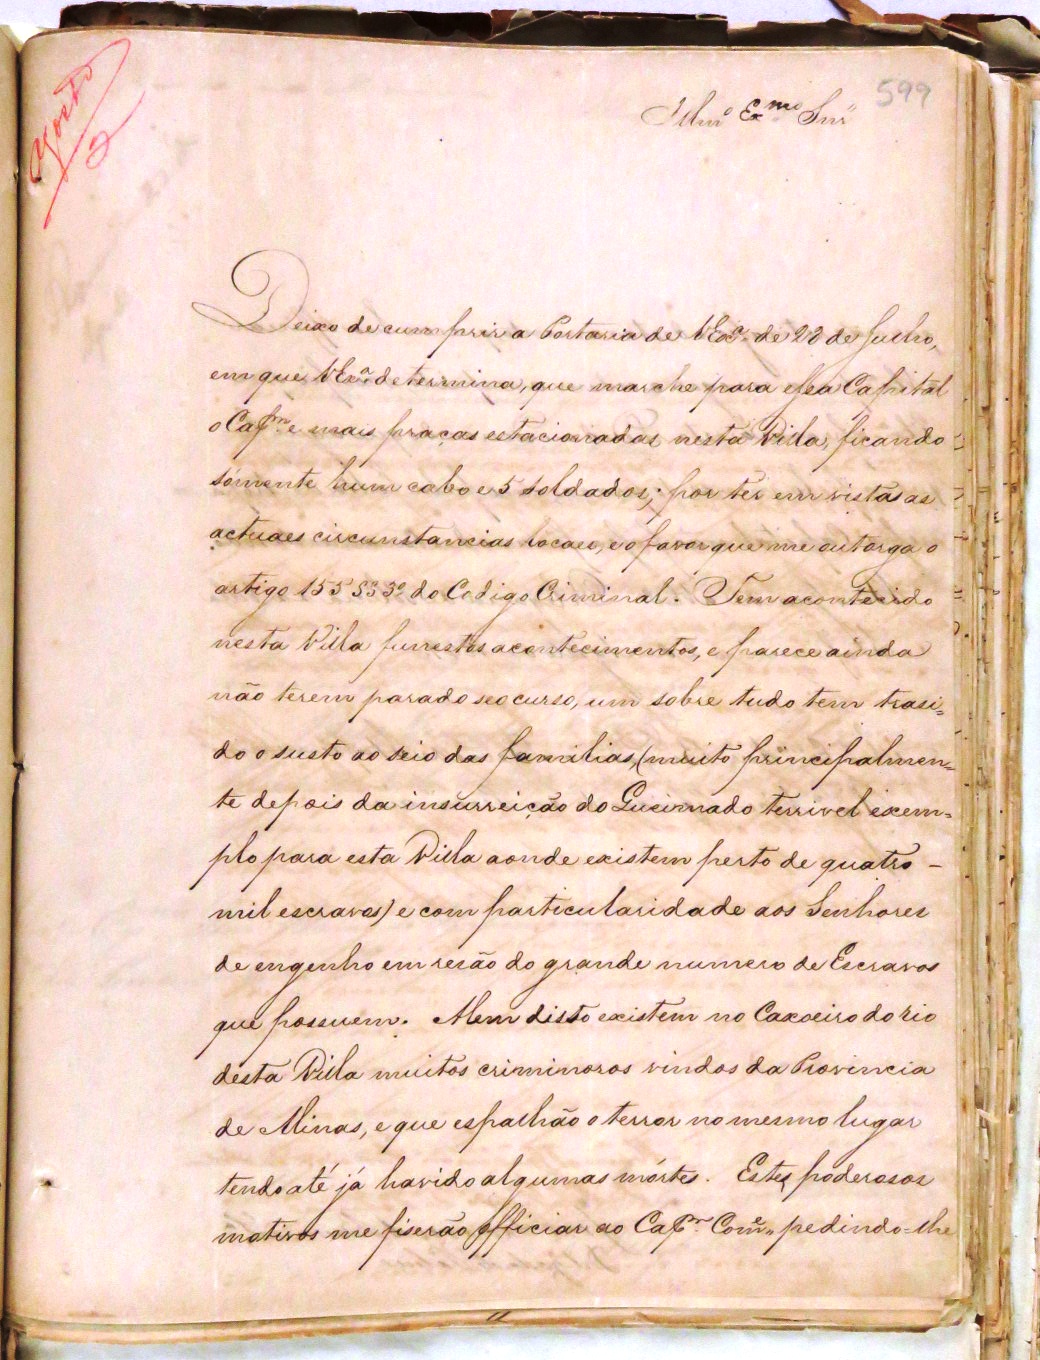 599
Agosto
2
Illmº Exmº Snr
Deixo de cumprir a Portaria de VExª de 28 de Julho,
em que VExª determina, que marche para essa Capital
o Capm e mais praças estacionadas nesta Villa, ficando
sómente hum cabo e 5 soldados; por ter em vistas as
actuaes circunstancias locaes, e o favor que me outorga o
artigo 155 § 3º do Codigo Criminal. Tem acontecido
nesta Villa funestos acontecimentos, e parece ainda
não terem parado seo curso, um sobre tudo tem trasi=
do o susto ao seio das familias, (muito principalmen=
te depois da insurreição do Queimado terrivel exem=
plo para esta Villa aonde existem perto de quatro -
mil escravos) e com particularidade aos Senhores
de engenho em resão do grande numero de Escravos
que possuem. Alem disto existem no Caxoeiro do rio
desta Villa muitos criminosos vindos da Provincia
de Minas, e que espalhão o terror no mesmo lugar
tendo até já havido algumas mórtes. Estes poderosos
motivos me fiserão officiar ao Capm Come pedindo-lhe